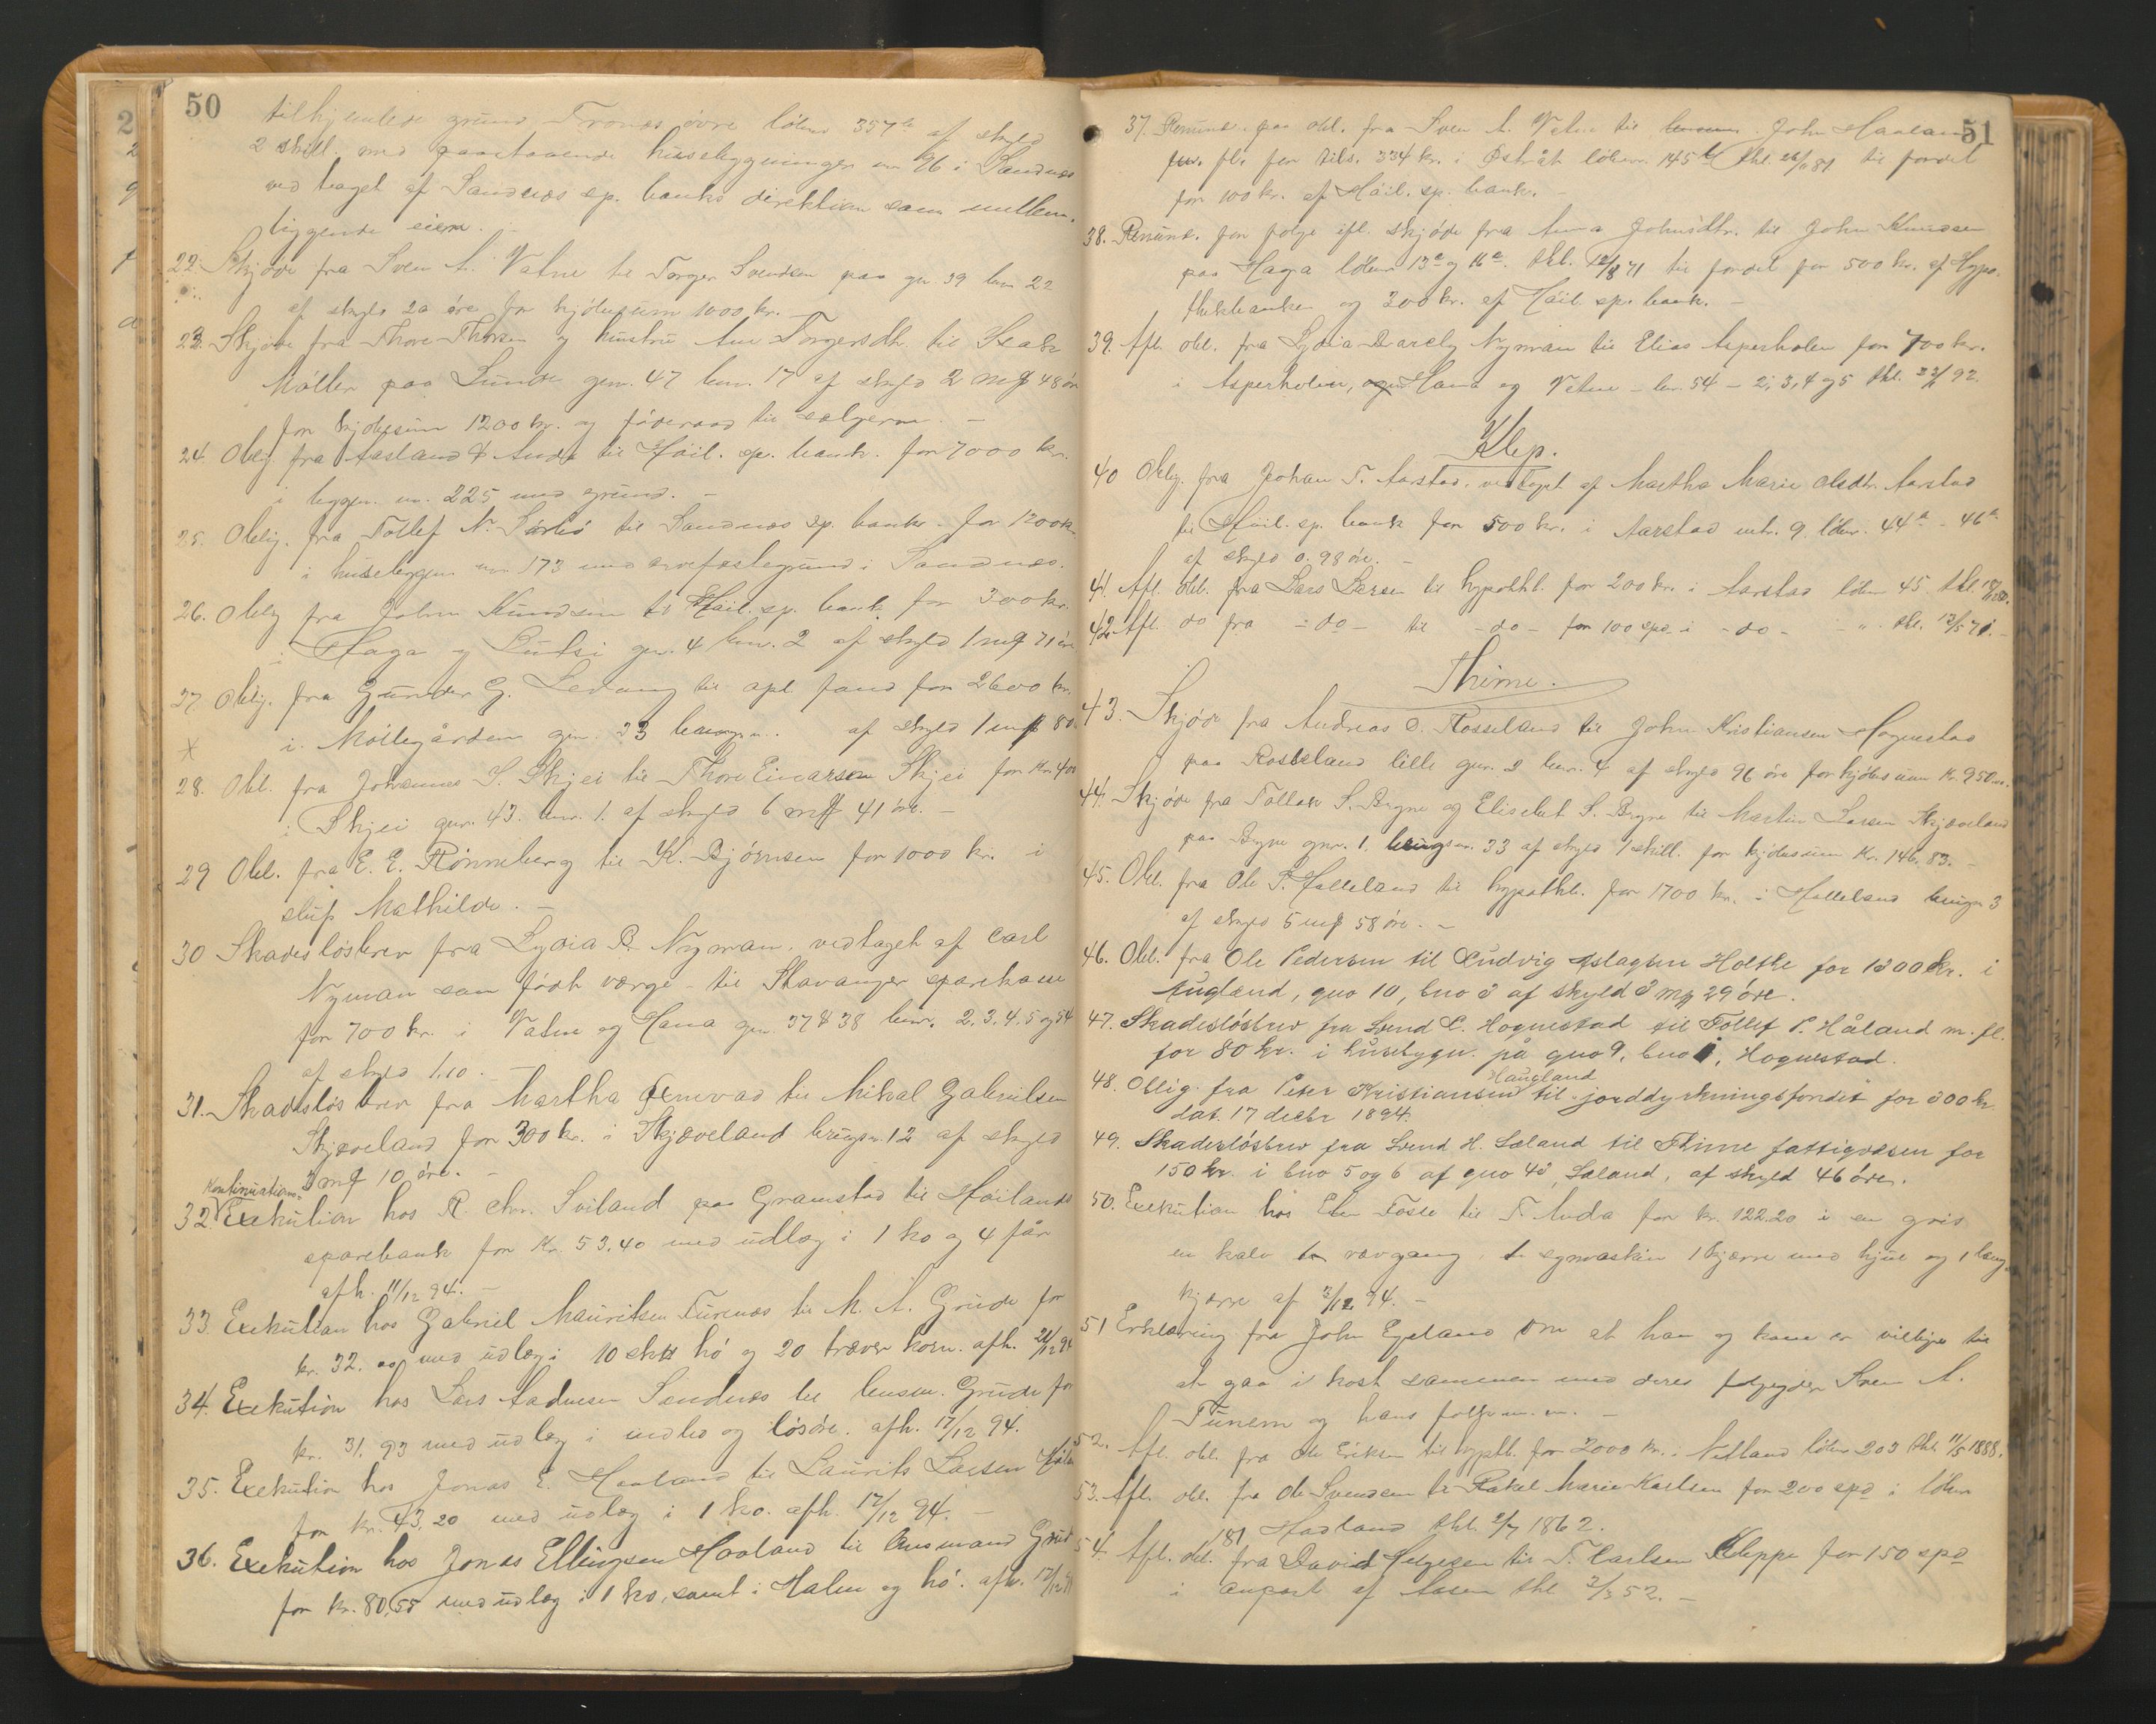 50
tilhjemlede grund Tronæs övre löbnr 357 b af skyld
2 skill. med paastaaende husebygninger nr 96 i Sandnæs
vedtaget af Sandnæs sp. banks direktion som mellem-
liggende eiere. –
22. Skjöde fra Sven A. Vatne til Torger Svendsen paa gn. 39 bnr 22
af skyld 20 öre for kjöbesum 1000 kr. –
23. Skjöde fra Thore Thorsen og hustru Ane Torgersdtr. til Isak
Möller paa Lunde gnr. 47 bnr. 17 af skyld 2 mk 48 öre
for kjöbesum 1200 kr. og föderaad til sælgerne. –
24. Oblig. fra Aasland & Auda til Höil. sp. bank. for 7000 kr.
i bygn. nr. 225 med grund. –
25. Oblig. fra Tollef N. Sörbö til Sandnæs sp. bank. for 1200 kr.
i husebygn. nr. 173 med arvefæstegrund i Sandnæs.
26. Oblig fra John Knudsen til Höil. sp. bank for 300 kr.
i Haga og Lutsi gnr. 4 bnr. 2 af skyld 1 mk 71 öre
27. Oblig. fra Gunder G. Levang til opl. fond for 2600 kr.
i Möllegården gnr. 33 brugsn. af skyld 1 mk 80
28. Obl. fra Johannes S. Skjei til Thore Einarsen Skjei for kr. 400
i Skjei gnr. 43. bnr. 1. af skyld 6 mk 41 öre. –
29 Obl. fra E. E. Rönneberg til K. Björnsen for 1000 kr. i
slup Mathilde. –
30 Skadeslösbrev fra Lydia B. Nyman, vedtaget af Carl
Nyman som födt værge – til Stavanger sparekasse
for 700 kr. i Vatne og Hana gn 37 & 38 bnr. 2. 3. 4. 5 og 54
af skyld 1,10. –
31. Skadeslösbrev fra Martha til Mikal Gabrielsen
Skjæveland for 300 kr. i Skjæveland brugsn. 12 af skyld
3 mk 10 öre. –
Kontinuations-
32 Exekution hos R. Chr. Sviland paa Gramstad til Höilands
sparebank for Kr. 53.40 med udlæg i 1 ko og 4 får
afh. 11/12 94. –
33. Exekution hos Gabriel Mauritsen Furenæs til M. A. Grude for
kr. 32.00 med udlæg i 10 hö og 20 traver korn. afh. 21/12 94
34. Exekution hos Lars Aadnesen Sandnæs til lensm. Grude for
kr. 31,93 med udlæg i indbo og lösöre. afh. 17/12 94.
35. Exekution hos Jonas E. Haaland til Laurits Larsen
for kr. 43,20 med udlæg i 1 ko. afh. 17/12 94. –
36. Exekution hos Jonas Ellingsen Haaland til lensmand Grude
for kr. 80,55 med udlæg i 1 ko, samt i Halm og hö. afh. 17/12 94
51
37. Renunc. paa obl. fra Sven A. Vatne til John Haaland
fl. for tils. 334 kr. i Østråt löbnr. 145 b thl. 26/11 81 til fordel
for 100 kr. af Höil. sp. bank. –
38. Renunc. for folge ifl. skjöde fra Anna Johnsdtr. til John Knudsen
paa Haga löbnr 13 a og 16 a. thl. 12/8 71 til fordel for 500 kr. af Hypo-
thekbanken og 300 kr. af Höil sp. bank. –
39. Afl. obl. fra Lydia Barely Nyman til Elias Asperholen for 700 kr.
i Asperholen, Hana og Vatne – bnr. 54 – 2, 3, 4 og 5 thl. 22/ 92.
Klep.
40 Oblig. fra Johan T. Aarstad, vedtaget af Martha Marie Olsdtr. Aarstad
til Höil. sp. bank for 500 kr. i Aarstad mtr. 9. löbnr. 44 a – 46 a
af skyld 0.98 öre. –
41. Afl. obl. fra Lars Larsen til hypothb. for 200 kr. i Aarstad löbnr 45 thl.
42. Afl. do fra – do – til – do – for 100 spd i – do – – " – thl. 12/5 71. –
Thime.
43. Skjöde fra Andreas O. Rosseland til John Kristiansen Hognestad
paa Rosseland lille gnr. 2 bnr. 4 af skyld 96 öre for kjöbesum Kr. 950.00.
44. Skjöde fra Tollak S. Bryne og Elisebet S. Bryne til Martin Larsen Skjæveland
paa Bryne gnr. 1. brugsnr. 33 af skyld 1 skill. for kjöbesum Kr. 146.83. –
45. Obl. fra Ole P. Holleland til hypothb. for 1700 kr. i Holleland brugn 3
af skyld 5 mk 58 öre. –
46. Obl. fra Ole Pedersen til Ludvig Aslagsen Holthe for 1300 kr. i
Augland, gno 10, bno 3 af skyld 3 mk 29 öre.
47. Skadeslösbrev fra Svend C. Hognestad til Tollef P. Håland m. fl.
for 80 kr. i husebygn. på gno 9, bno 1, Hognestad.
Haugland
48. Oblig. fra Peter Kristiansen til jorddyrkningsfondet for 300 kr.
dat. 17 decbr 1894.
49. Skadeslösbrev fra Svend H. Sæland til Thime fattigvæsen for
150 kr. i bno 5 og 6 af gno 43, Sæland, af skyld 46 öre.
50. Exekution hos Eben Fosse til T. Auda for kr. 122.20 i en gris
en kalv en rovgang, 1 symaskin 1 kjærre med hjul og 1 lang-
kjærre af 3/12 94. –
51 Erklæring fra John Egeland om at han og kone er villige til
at gaa i kost sammen med deres Sven A.
Tunem og hans folge m. m. –
52. Afl. obl. fra Ole Eriksen til hypthb. for 2000 kr. i Netland löbnr 203 thl. 11/5 1888.
53. Afl. obl. fra Ole Svendsen til Rakel Marie Karlsen for 200 spd i löbnr
181 Haaland thl. 2/7 1862.
54. Afl. obl. fra David Helgesen til T. Carlsen Kleppe for 150 spd
i anpart af Aasen thl 3/3 52. –